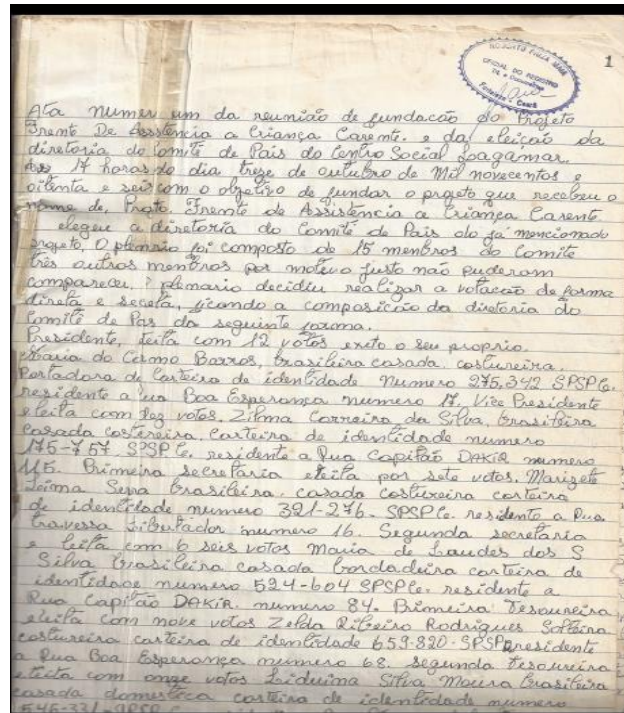 1
OFICIAL DO REGISTRO
Fortaleza - Ceará
Ata numer um da reunião de fundacão do Projeto
Frente De Assistência a Criança Carente. e da eleição da
diretoria do Comitê de Pais do Centro Social Lagamar.
17 horas do dia treze de outubro de Mil novecentos e
oitenta e seis com o objetivo de fundar o projeto que recebeu o
nome de, Proto. Frente de Assistência a Criança Carente
elegeu a diretoria do Comitê de Pais do já mencionado
projeto, O plenário foi composto de 15 menbros do Comite
três outros menbros por motivo justo não puderam
comparecer, plenario decidiu realizar a votacão de forma
direta e secreta, ficando a composicão da diretoria do
Comitê de Pas da seguinte forma.
Presidente, feita com 12 votos exeto o seu proprio.
Maria do Carmo Barros, brasileira casada. costureira.
Portadora de Carteira de identidade Numero 275,342 SPSP Ce.
residente a rua Boa Esperança numero 17. Vice Presidente
eleita com dez votos, Zilma Correira da Silva, brasileira
casada costereira. Carteira de identidade numero
175-757. SPSP Ce, residente a Rua Capitão DAKIR numero
115. Primeira secretaria eleita por sete votos. Marizete
Leima Sena brasileira, casada costureira carteira
de identidade numero 321-276. SPSP Ce. residente a Rua
travessa Libertador numero 16. Segunda secretaria
e leita com 6 seis votos Maria de Laudes dos S
Silva brasileira casada bordadeira carteira de
identidade numero 524-604 SPSP Ce. residente a
Rua Capitão DAKIR. numero 84. Primeira Tesoureira
eleita com nove votos Zelda Ribeiro Rodrigues Solteira
costureira carteira de identidade 659-820-SPSP residente
a Rua Boa Esperança numero 68. segunda tesoureira
eleita com onze votos Luiduina Silva Moura brasileira
casada domestica carteira de identidade numero